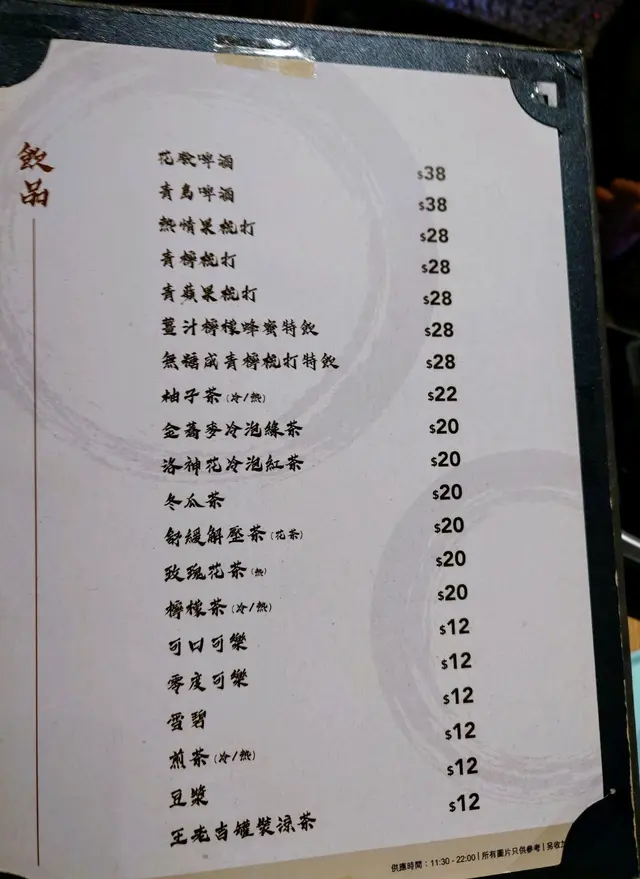 飲品
啤酒 $38
青島啤酒 $38
熱情果梳打 $28
青檸梳打 $28
青蘋果梳打 $28
薑汁檸檬蜂蜜特飲 $28
無糖咸青檸梳打特飲 $28
柚子茶(冷/熱) $22
金蕎麥冷泡綠茶 $20
洛神花冷泡紅茶 $20
冬瓜茶 $20
舒緩解壓茶(花茶) $20
玫瑰花茶(熱) $20
檸檬茶(冷/熱) $20
可口可樂 $12
零度可樂 $12
雪碧 $12
煎茶(冷/熱) $12
豆漿 $12
王老吉罐裝涼茶 $12
供應時間：11:30 - 22:00 | 所有圖片只供參考 | 另收